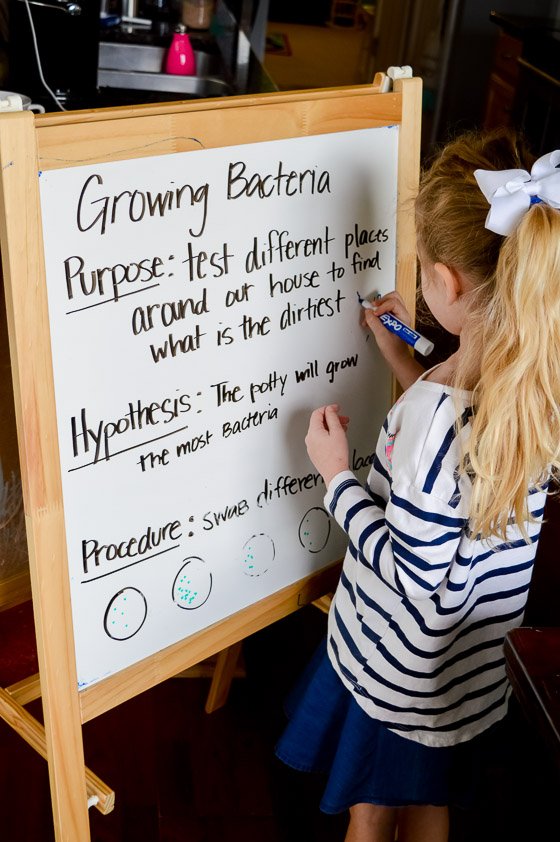 Growing Bacteria
Purpose: test different places
around our house to find
what is the dirtiest
EXPO
Hypothesis: The potty will grow
the most Bacteria
Procedure: swab different